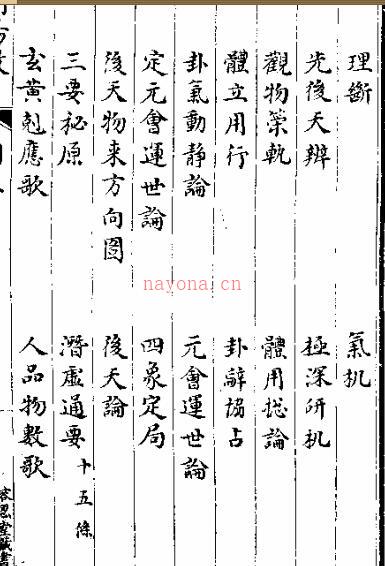 理斷
氣机
先後天辨
極深研机
觀物策軌
體用揔論
體立用行
卦辭協占
卦氣動靜論
元會運世論
定元會運世論
四象定局
後天物来方向图
後天論
三要秘原
潛虛通要 十五條
玄黄剋應歌
人品物數歌
nayona.cn